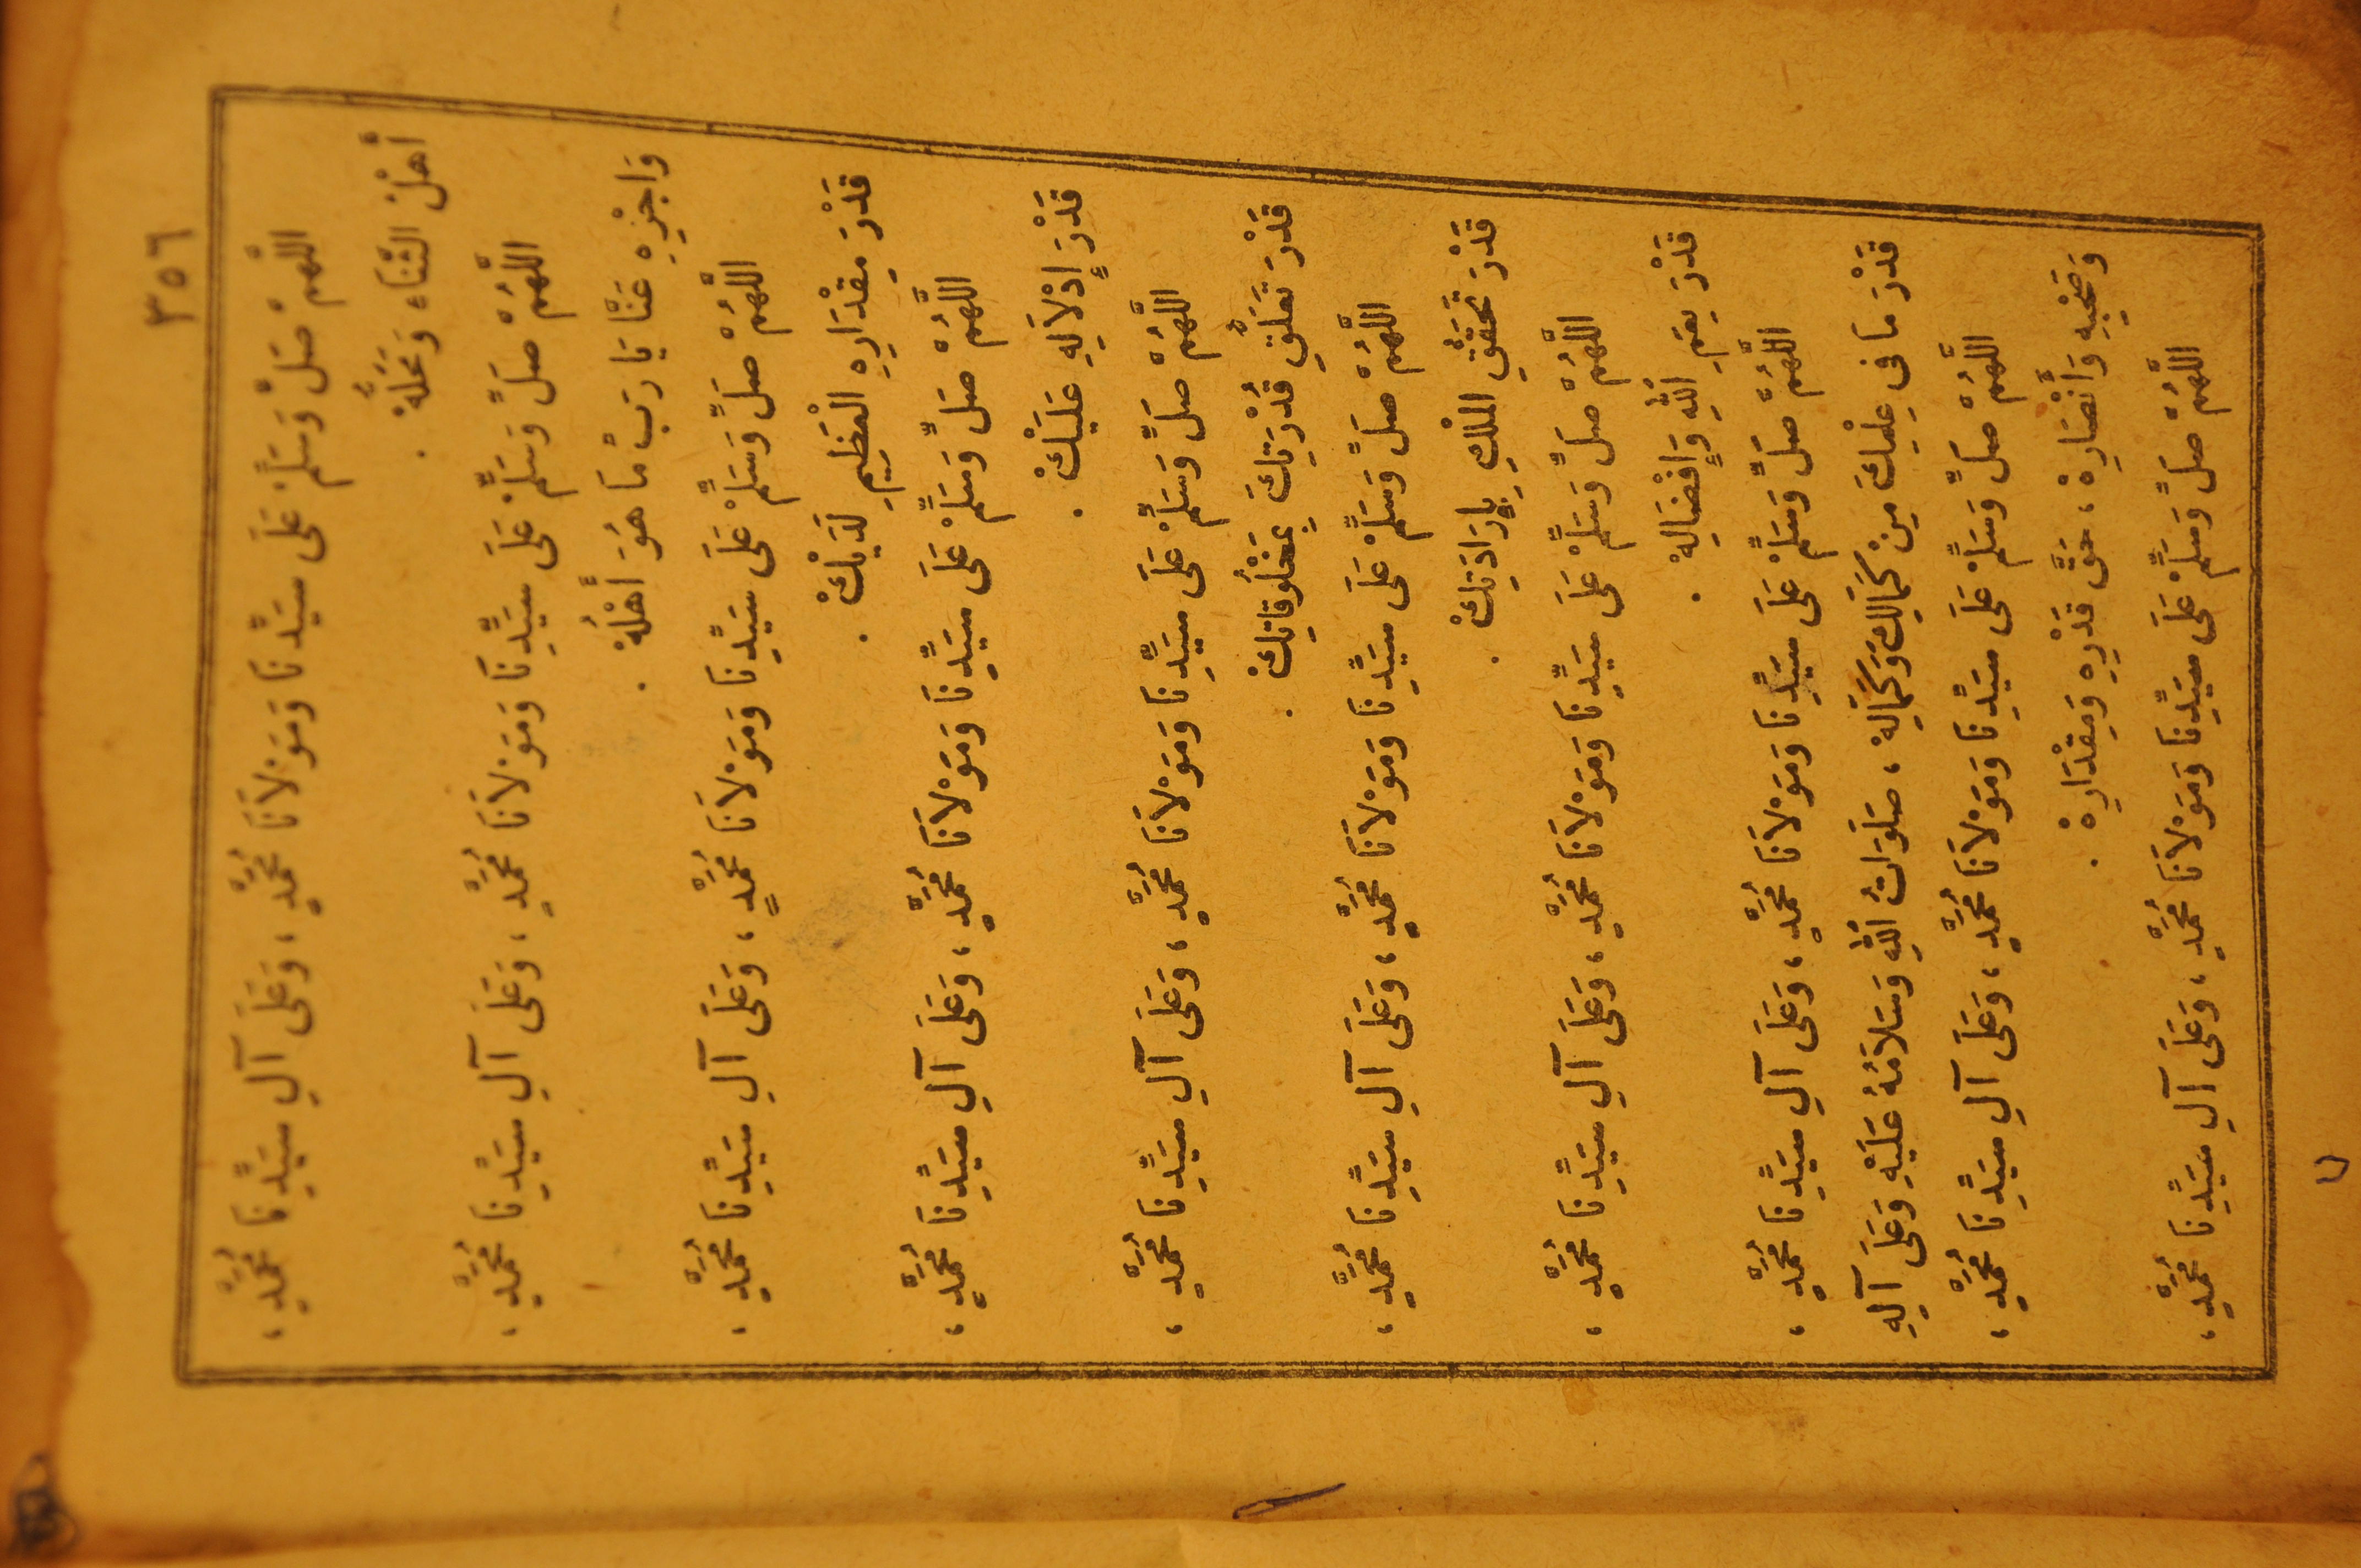 ٣٥٦
اللَّهُمَّ صَلِّ وَسَلِّمْ عَلَى سَيِّدِنَا وَمَوْلَانَا مُحَمَّدٍ، وَعَلَى آلِ سَيِّدِنَا مُحَمَّدٍ،
أَهْلُ الثَّنَاءِ وَمَحَلُّهْ .
اللَّهُمَّ صَلِّ وَسَلِّمْ عَلَى سَيِّدِنَا وَمَوْلَانَا مُحَمَّدٍ، وَعَلَى آلِ سَيِّدِنَا مُحَمَّدٍ،
وَاجْزِهِ عَنَّا يَا رَبِّ مَا هُوَ أَهْلُهْ .
اللَّهُمَّ صَلِّ وَسَلِّمْ عَلَى سَيِّدِنَا وَمَوْلَانَا مُحَمَّدٍ، وَعَلَى آلِ سَيِّدِنَا مُحَمَّدٍ،
قَدْرَ مِقْدَارِهِ الْعَظِيمِ لَدَيْكْ .
اللَّهُمَّ صَلِّ وَسَلِّمْ عَلَى سَيِّدِنَا وَمَوْلَانَا مُحَمَّدٍ، وَعَلَى آلِ سَيِّدِنَا مُحَمَّدٍ،
قَدْرَ إِدْلَالِهِ عَلَيْكْ .
اللَّهُمَّ صَلِّ وَسَلِّمْ عَلَى سَيِّدِنَا وَمَوْلَانَا مُحَمَّدٍ، وَعَلَى آلِ سَيِّدِنَا مُحَمَّدٍ،
قَدْرَ تَعَلُّقِ قُدْرَتِكَ بِمَخْلُوقَاتِكْ .
اللَّهُمَّ صَلِّ وَسَلِّمْ عَلَى سَيِّدِنَا وَمَوْلَانَا مُحَمَّدٍ، وَعَلَى آلِ سَيِّدِنَا مُحَمَّدٍ،
قَدْرَ تَحَقُّقِ الْمُلْكِ بِإِرَادَتِكْ .
اللَّهُمَّ صَلِّ وَسَلِّمْ عَلَى سَيِّدِنَا وَمَوْلَانَا مُحَمَّدٍ، وَعَلَى آلِ سَيِّدِنَا مُحَمَّدٍ،
قَدْرَ نِعَمِ اللهِ وَإِفْضَالِهْ .
اللَّهُمَّ صَلِّ وَسَلِّمْ عَلَى سَيِّدِنَا وَمَوْلَانَا مُحَمَّدٍ، وَعَلَى آلِ سَيِّدِنَا مُحَمَّدٍ،
قَدْرَ مَا فِي عِلْمِكَ مِنْ كَمَالِكَ وَكَمَالِهْ، صَلَوَاتُ اللهِ وَسَلَامُهُ عَلَيْهِ وَعَلَى آلِهِ
اللَّهُمَّ صَلِّ وَسَلِّمْ عَلَى سَيِّدِنَا وَمَوْلَانَا مُحَمَّدٍ، وَعَلَى آلِ سَيِّدِنَا مُحَمَّدٍ،
وَصَحْبِهِ وَأَنْصَارِهْ، حَقَّ قَدْرِهِ وَمِقْدَارِهْ .
اللَّهُمَّ صَلِّ وَسَلِّمْ عَلَى سَيِّدِنَا وَمَوْلَانَا مُحَمَّدٍ، وَعَلَى آلِ سَيِّدِنَا مُحَمَّدٍ،